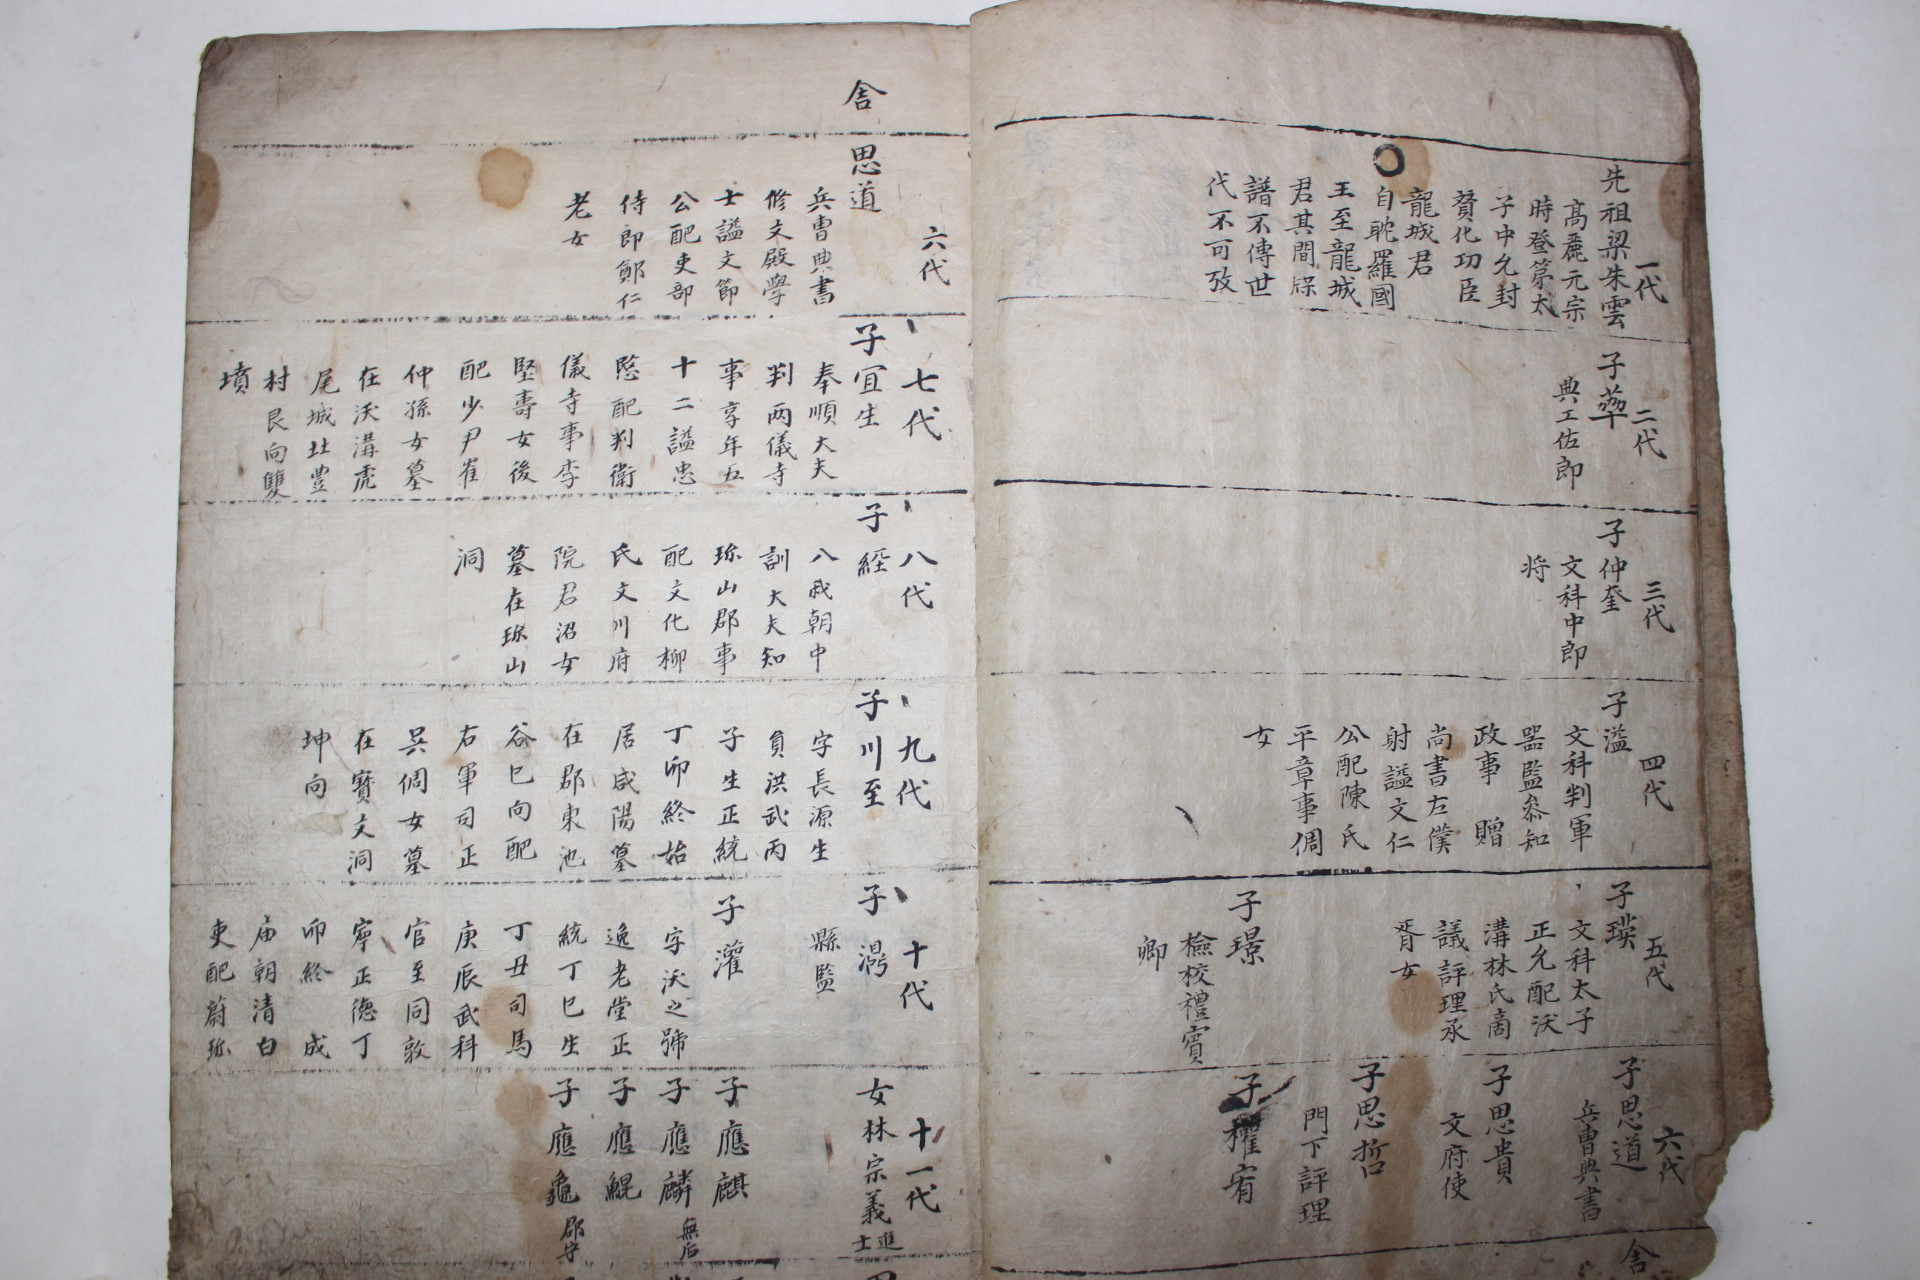 一代
先祖梁朱雲
高麗元宗
時登第太
子中允封
賛化功臣
龍城君
自耽羅國
王至龍城
君其間牒
譜不傳世
代不可攷
二代
子
典工佐郎
三代
子仲奎
文科中郎
将
四代
子溢
文科判軍
器監叅知
政事 贈
尚書左僕
射謚文仁
公配陳氏
平章事倜
女
五代
子瑛
文科太子
正允配沃
溝林氏商
議評理承
胥女
子璟
檢校禮賓
卿
六代
子思道
兵曹典書
子思貴
文府使
子思哲
門下評理
子權宥
舎
舎
六代
思道
兵曹典書
修文殿學
士謚文節
公配吏部
侍郎鄭仁
老女
七代
子宜生
奉順大夫
判兩儀寺
事享年五
十二謚忠
愍配判衛
儀寺事李
堅壽女後
配少尹崔
仲孫女墓
在沃溝虎
尾城北豊
村艮向雙
墳
八代
子經
八我朝中
訓大夫知
珎山郡事
配文化柳
氏文川府
院君沼女
墓在珎山
洞
九代
子川至
字長源生
負洪武丙
子生正統
丁卯終始
居咸陽墓
在郡東池
谷巳向配
右軍司正
吳倜女墓
在寳文洞
坤向
十代
子濁
縣監
子灌
字沃之號
逸老堂正
統丁巳生
丁丑司馬
庚辰武科
官至同敦
寧正德丁
卯終 成
庙朝清白
吏配蔚珎
十一代
女林宗義進士
子應麒
子應麟無后
子應鯤
子應龜郡守